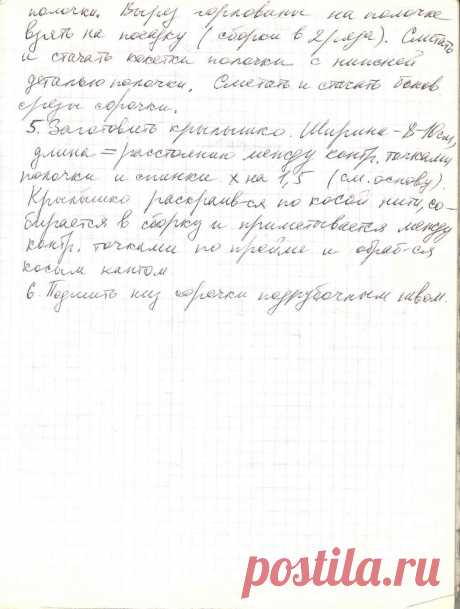 полочки. Вырез горловины на полочке
взять на посадку (сборки в 2 ряда). Сметать
и стачать кокетки полочки с нижней
деталью полочки. Сметать и стачать боков
срезы сорочки.
5. Заготовить крылышко. Ширина - 8-10см,
длина = расстоянию между контр. точками
полочки и спинки х на 1,5 (см. основу).
Крылышко раскраив-ся по косой нити, со-
бирается в сборку и приметывается между
контр. точками по пройме и обраб-ся
косым кантом
6. Подшить низ сорочки подрубочным швом.
postila.ru